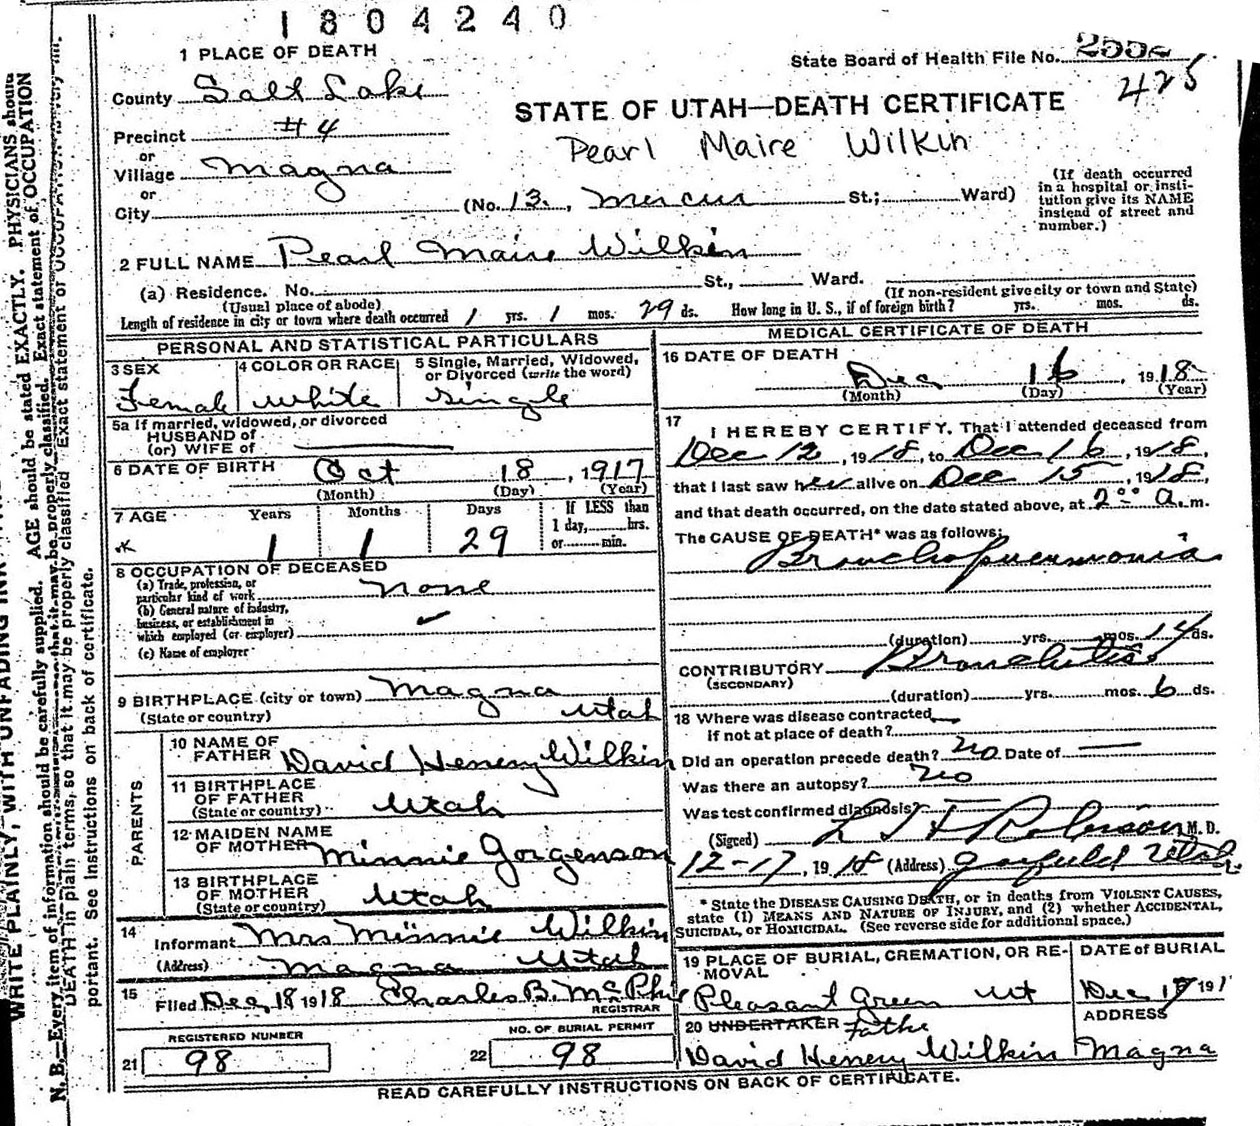 1804240
1 PLACE OF DEATH
State Board of Health File No. 2552
425
County Salt Lake
STATE OF UTAH—DEATH CERTIFICATE
Precinct #4
Pearl Maire Wilkin
or
Village Magna
or
City (No. 13. , Mercur St.; Ward)
(If death occurred in a hospital or institution give its NAME instead of street and number.)
2 FULL NAME Pearl Maire Wilkin
(a) Residence. No. St., Ward.
(Usual place of abode) (If non-resident give city or town and State)
Length of residence in city or town where death occurred 1 yrs. 1 mos. 29 ds. How long in U. S., if of foreign birth? yrs. mos. ds.
PERSONAL AND STATISTICAL PARTICULARS
3 SEX 4 COLOR OR RACE 5 Single, Married, Widowed, or Divorced (write the word)
Female white single
5a If married, widowed, or divorced
HUSBAND of
(or) WIFE of
6 DATE OF BIRTH Oct 18 , 1917
(Month) (Day) (Year)
7 AGE Years Months Days If LESS than
1 day, hrs.
or min.
1 1 29
8 OCCUPATION OF DECEASED
(a) Trade, profession, or
particular kind of work none
(b) General nature of industry,
business, or establishment in
which employed (or employer)
(c) Name of employer
9 BIRTHPLACE (city or town) Magna
(State or country) Utah
PARENTS
10 NAME OF
FATHER David Henery Wilkin
11 BIRTHPLACE
OF FATHER
(State or country) Utah
12 MAIDEN NAME
OF MOTHER Minnie Gorgenson
13 BIRTHPLACE
OF MOTHER
(State or country) Utah
14
Informant Mrs Minnie Wilkin
(Address) Magna Utah
15
Filed Dec 18 1918 Charles B. McPh
REGISTRAR
REGISTERED NUMBER NO. OF BURIAL PERMIT
21 98 22 98
MEDICAL CERTIFICATE OF DEATH
16 DATE OF DEATH
Dec 16 , 1918
(Month) (Day) (Year)
17
I HEREBY CERTIFY, That I attended deceased from
Dec 12 , 1918, to Dec 16 , 1918,
that I last saw her alive on Dec 15 , 1918,
and that death occurred, on the date stated above, at 2 00 a.m.
The CAUSE OF DEATH* was as follows:
Bronchopneumonia
(duration) yrs. mos. 14 ds.
CONTRIBUTORY Bronchitis
(SECONDARY)
(duration) yrs. mos. 6 ds.
18 Where was disease contracted
if not at place of death?
Did an operation precede death? no Date of
Was there an autopsy? no
Was test confirmed diagnosis?
(Signed) Roberson M. D.
12-17 , 1918 (Address) Garfield Utah
* State the DISEASE CAUSING DEATH, or in deaths from VIOLENT CAUSES,
state (1) MEANS AND NATURE OF INJURY, and (2) whether ACCIDENTAL,
SUICIDAL, or HOMICIDAL. (See reverse side for additional space.)
19 PLACE OF BURIAL, CREMATION, OR RE-
MOVAL
DATE of BURIAL
Pleasant Green Ut Dec 17 191
20 UNDERTAKER Fathe
ADDRESS
David Henery Wilkin Magna
READ CAREFULLY INSTRUCTIONS ON BACK OF CERTIFICATE.
WRITE PLAINLY, WITH UNFADING INK
N. B.—Every item of information should be carefully supplied. AGE should be stated EXACTLY. PHYSICIANS should
DEATH in plain terms, so that it may be properly classified. Exact statement of OCCUPATION
portant. See Instructions on back of certificate.